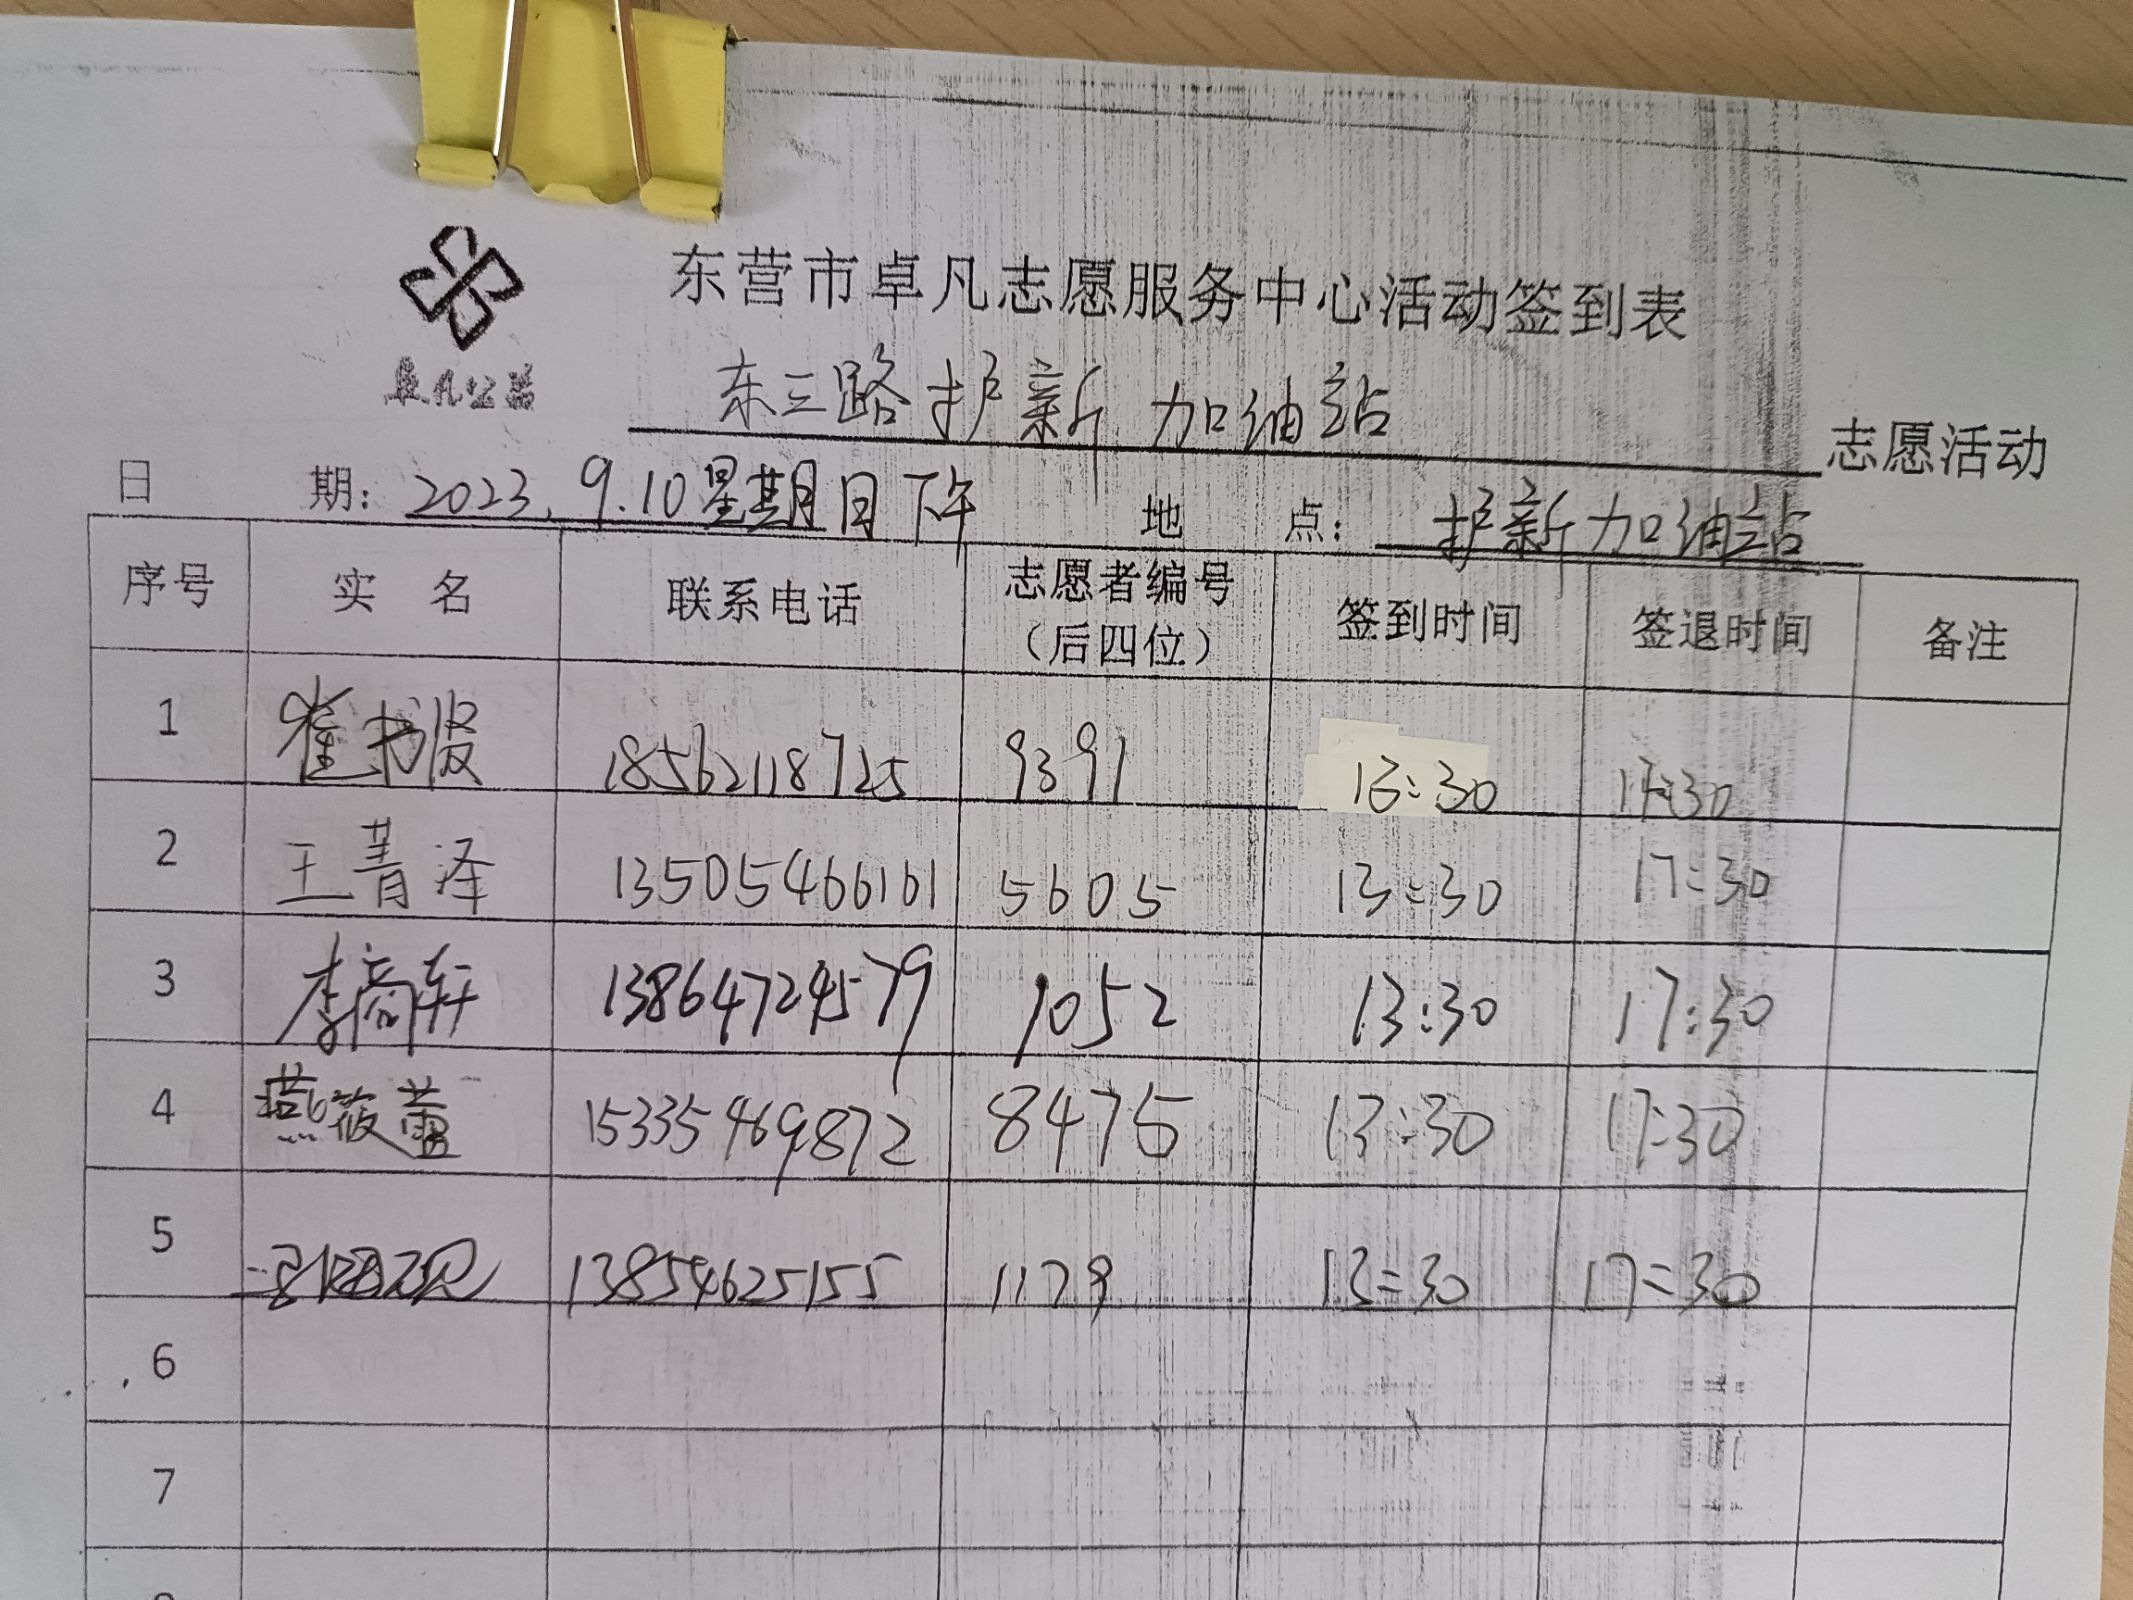 东营市卓凡志愿服务中心活动签到表
卓凡公益
东三路护新加油站 志愿活动
日 期: 2023.9.10星期日下午 地 点: 护新加油站
序号 实 名 联系电话 志愿者编号(后四位) 签到时间 签退时间 备注
1 崔书贤 18562118725 9391 13:30 17:30
2 王菁泽 13505466161 5605 13:30 17:30
3 李商轩 13864724579 1052 13:30 17:30
4 燕筱蕾 15335469872 8475 13:30 17:30
5 13854625155 1179 13:30 17:30
6
7